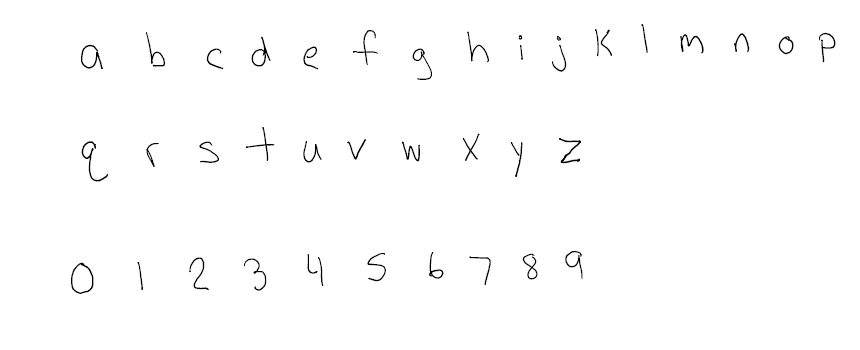 a b c d e f g h i j k l m n o p
q r s t u v w x y z
0 1 2 3 4 5 6 7 8 9